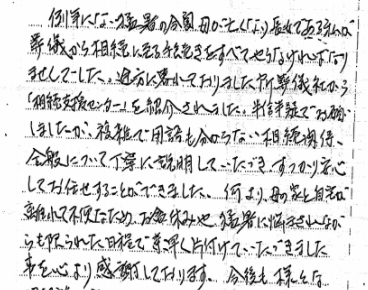 例年にない猛暑の今夏 母が亡くなり 長女である私が
葬儀から相続に至る手続きをすべてやらなければなり
ませんでした。途方に暮れておりましたが葬儀社から
「相続支援センター」を紹介されました。半信半疑でお願い
しましたが、複雑で用語も分からない相続関係
全般について丁寧に説明していただき すっかり安心
してお任せすることができました。何より、母の家と自宅が
離れて不便なため、お盆休みや猛暑に悩まされなが
らも限られた日程で素早く片付けていただきました
事を心より感謝しております。今後も様々な